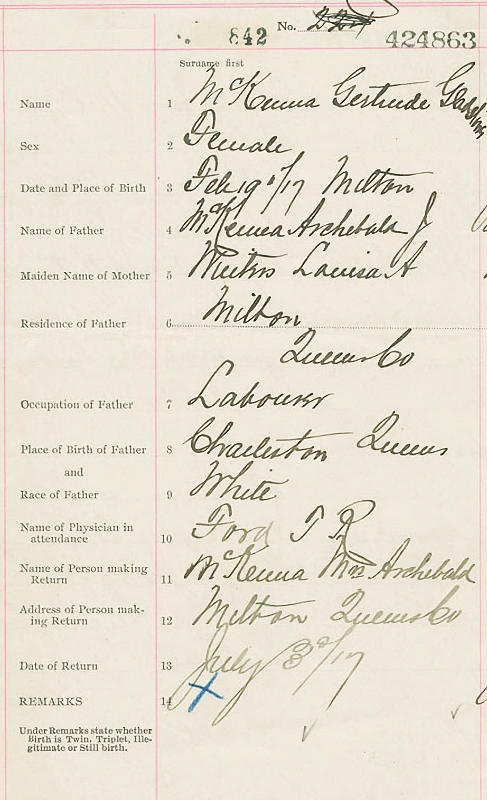 842 No. 424863
Surname first
Name 1 McKenna Gertrude
Sex 2 Female
Date and Place of Birth 3 Feb 19th/17 Milton
Name of Father 4 McKenna Archebald J
Maiden Name of Mother 5 Winters Louisa A
Residence of Father 6 Milton
Queens Co
Occupation of Father 7 Labourer
Place of Birth of Father 8 Charleston Queens
and
Race of Father 9 White
Name of Physician in
attendance 10 Ford T R
Name of Person making
Return 11 McKenna Mrs Archebald
Address of Person mak-
ing Return 12 Milton Queens Co
Date of Return 13 July 3rd/17
REMARKS 14 X
Under Remarks state whether
Birth is Twin, Triplet, Ille-
gitimate or Still birth.